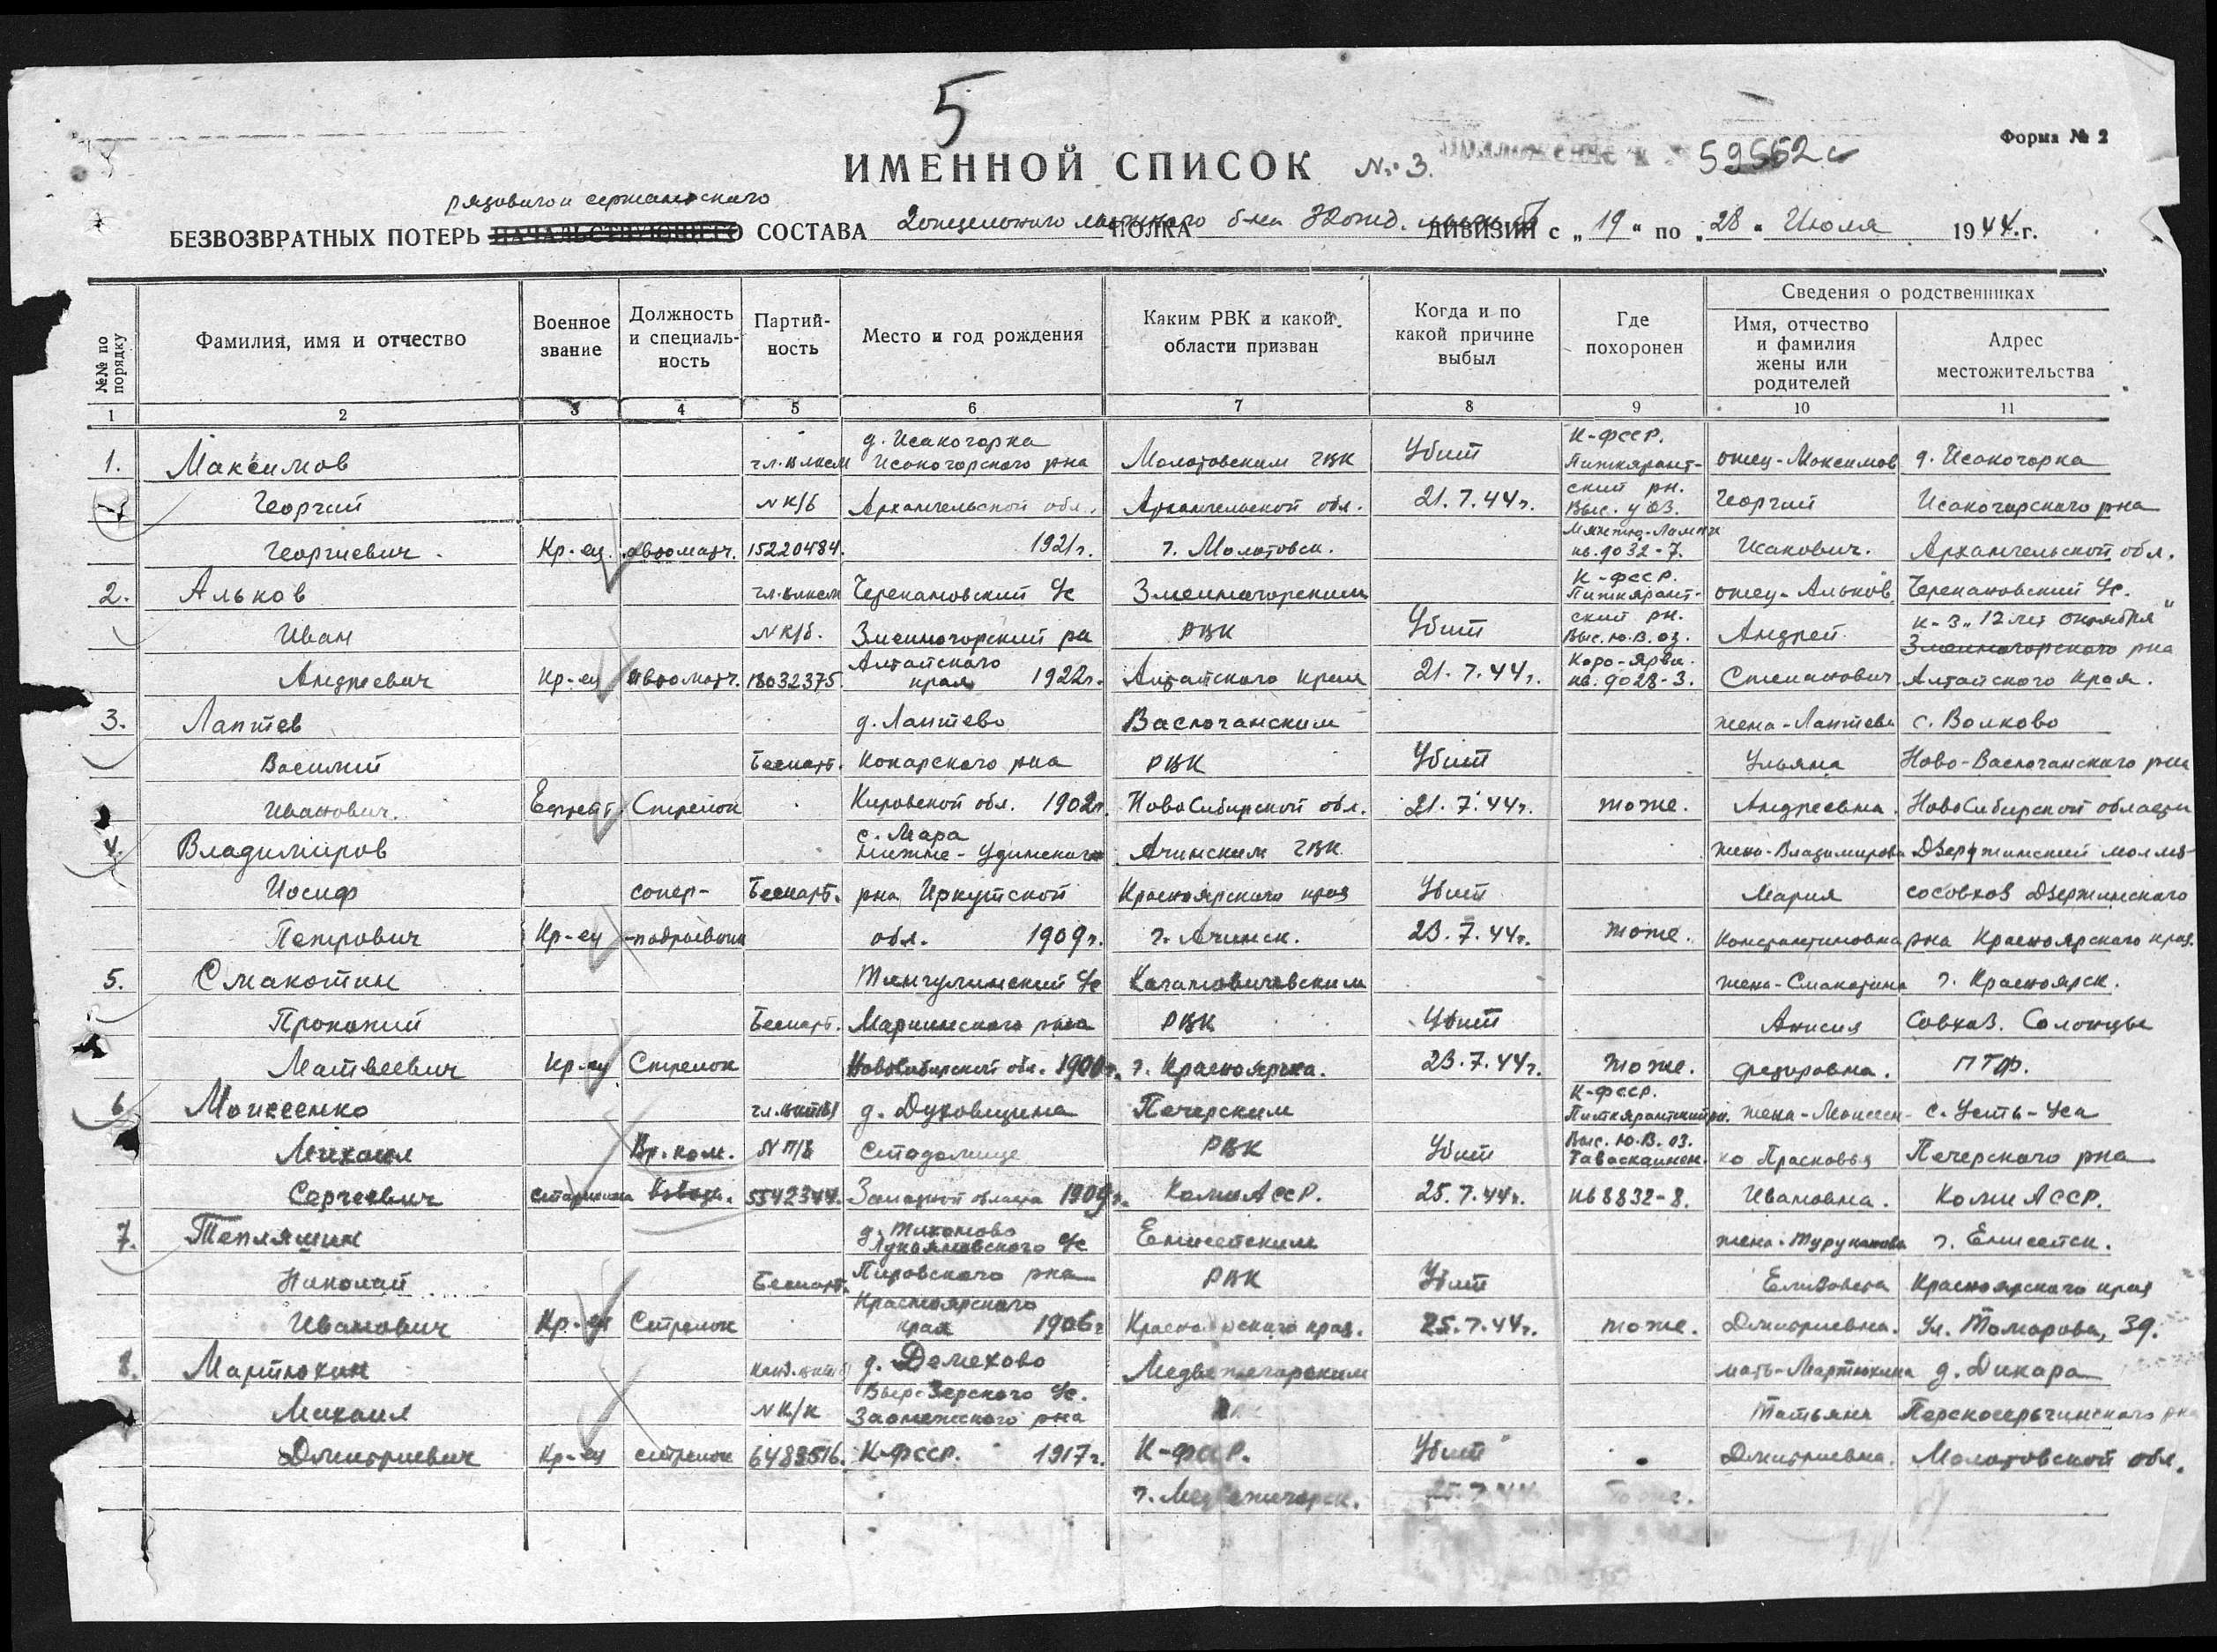 5
Форма № 2
ИМЕННОЙ СПИСОК № 3. Приложение к 59562с
рядового и сержантского
БЕЗВОЗВРАТНЫХ ПОТЕРЬ НАЧАЛЬСТВУЮЩЕГО СОСТАВА 2 отдельного лыжного ПОЛКА б-на ДИВИЗИИ с „19“ по „28“ Июля 1944 г.
№№ по порядку
Фамилия, имя и отчество
Военное звание
Должность и специальность
Партийность
Место и год рождения
Каким РВК и какой области призван
Когда и по какой причине выбыл
Где похоронен
Сведения о родственниках
Имя, отчество и фамилия жены или родителей
Адрес местожительства
1 2 3 4 5 6 7 8 9 10 11
д. Исакогорка К-ФССР.
1. Максимов чл. влксм Исакогорского рна Молотовским ГВК Убит Питкярант- отец-Максимов д. Исакогорка
ский рн.
Георгий №К/б Архангельской обл. Архангельской обл. 21.7.44г. Выс. у оз. Георгий Исакогорского рна
Георгиевич. Кр-ец автоматч. 15220484. 1921г. г. Молотовск. кв. 9032-7. Исакович. Архангельской обл.
К-ФССР.
2. Альков чл. влксм Черепановский с/с Змеиногорским Питкярант- отец-Альков Черепановский с/с.
ский рн. к-з „12 лет октября“
Иван №К/б. Змеиногорский рн РВК Убит Выс. Ю.В. оз. Андрей Змеиногорского рна
Алтайского Коро-Ярви.
Андреевич Кр-ец автоматч. 18032375 края 1922г. Алтайского края 21.7.44г. кв. 9028-3. Степанович Алтайского края.
3. Лаптев д. Лаптево Васюганским жена-Лаптева с. Волково
Василий Беспарт. Кокарского рна РВК Убит Ульяна Ново-Васюганского рна
Иванович. Ефрейт. Стрелок Кировской обл. 1902г. Новосибирской обл. 21.7.44г. тоже. Андреевна. Новосибирской области
с. Мара
4. Владимиров нижне-Удинского Ачинским ГВК жена-Владимирова Дзержинский
Иосиф сапер- Беспарт. рна Иркутской Красноярского края Убит Мария сосовхоз Дзержинского
Петрович Кр-ец -подрывник обл. 1909г. г. Ачинск. 23.7.44г. тоже. Константиновна рна Красноярского края.
5. Смакотин Тенгулинский с/с Кагановичевским жена-Смакотина г. Красноярск.
Прокопий Беспарт. Мариинского рна РВК Убит Анисия Совхоз. Солонцы
Матвеевич Кр-ец Стрелок Новосибирской обл. 1900г. г. Красноярска. 23.7.44г. тоже. Федоровна. ПТФ.
К-ФССР.
6. Моисеенко чл. вкп(б) д. Духовщина Печерским Питкярантский рн. жена-Моисеен- с. Усть-Уса
Выс. Ю.В. оз.
Михаил Вр. ком. №П/б Стодолище РВК Убит ко Прасковья Печерского рна
Сергеевич старшина взвода. 5542344. Западной области 1909г. Коми АССР. 25.7.44г. кв 8832-8. Ивановна. Коми АССР.
д. Тихоново
7. Тепляшин Лукьяновского с/с Енисейским жена-Туруханова г. Енисейск.
Николай Беспарт. Пировского рна РВК Убит Елизавета Красноярского края
Красноярского
Иванович Кр-ец Стрелок края 1906г Красноярского края. 25.7.44г. тоже. Дмитриевна. Ул. Томарова, 39.
8. Мартюхин д. Демехово Медвежегорским мать-Мартюхина д. Дикара
Вырозерского с/с.
Михаил №К/к Заонежского рна Татьяна
Дмитриевич Кр-ец стрелок 6483516. К-ФССР. 1917г. К-ФССР. Убит Дмитриевна. Молотовской обл.
г. Медвежегорск. 25.7.44 тоже.